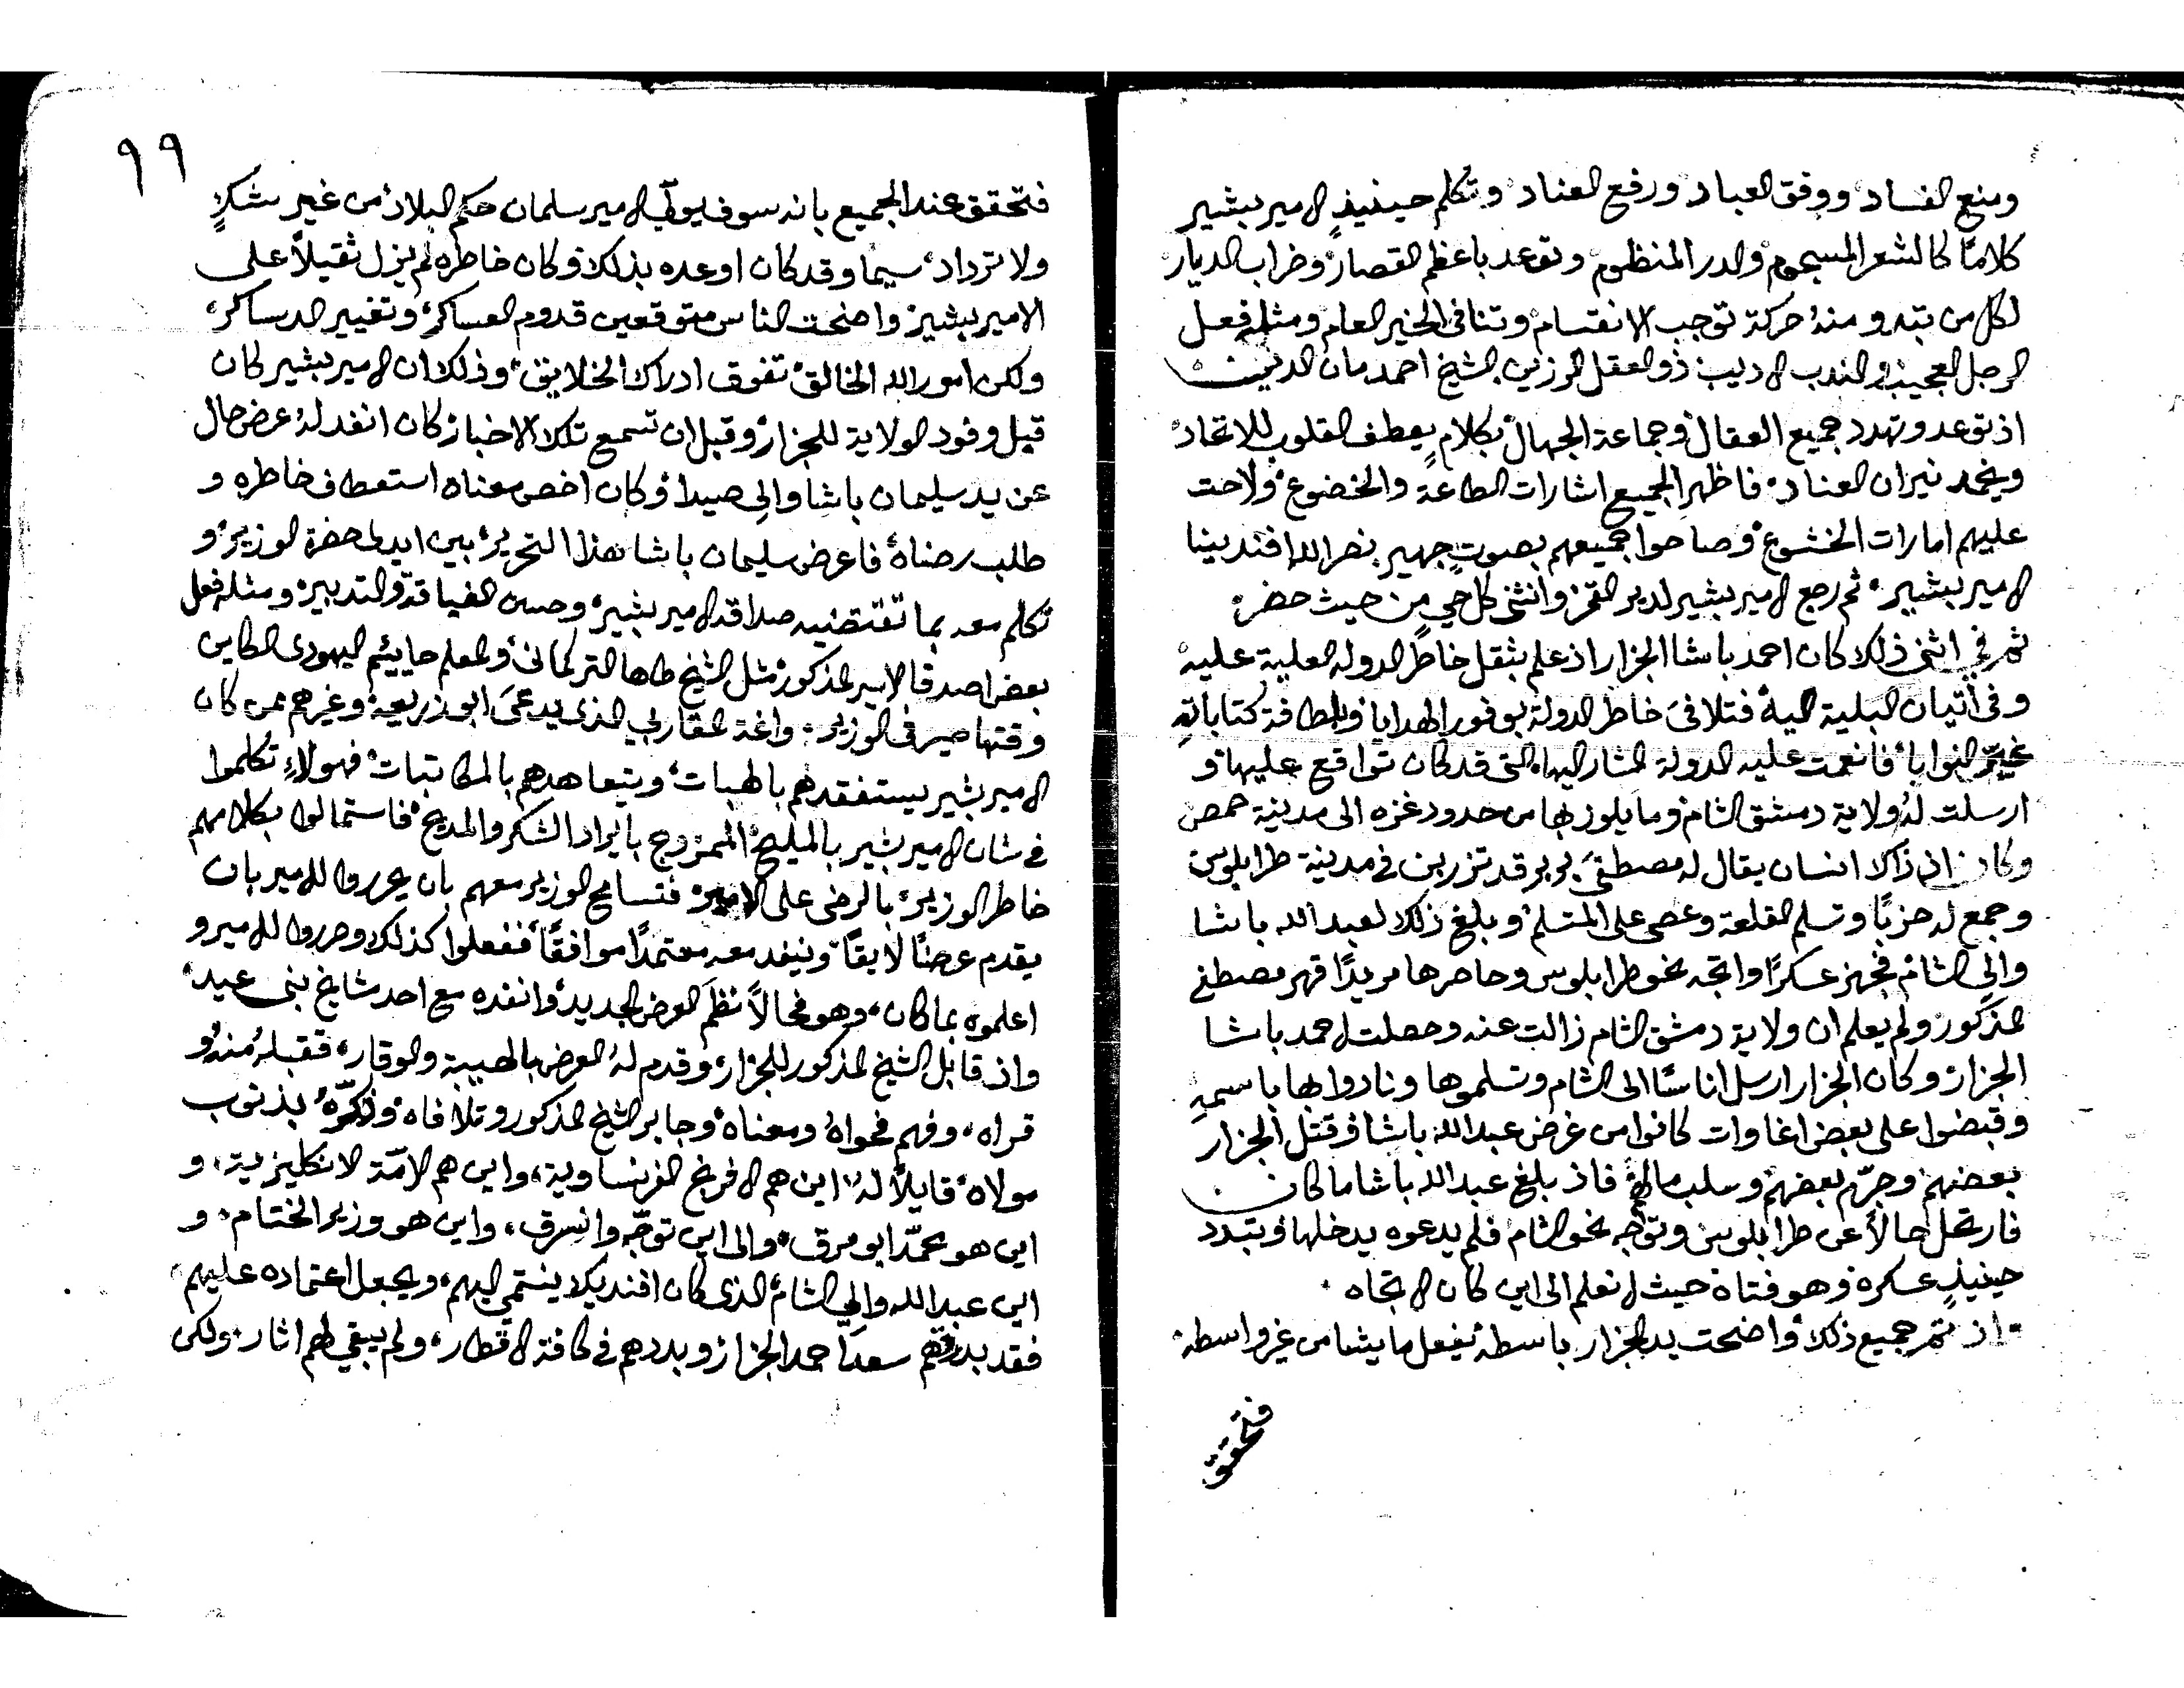 ومنع الفساد ووفق العباد ورفع العناد وتكلم حينيذٍ الامير بشير
كلامًا كالشعر المسجوم والدر المنظوم وتوعد باعظم القصار وخراب الديار
لكل من تبدو منهُ حركة توجب الانقسام وتنافي الخير العام ومثله فعل
الرجل العجيب والندب الاديب ذو العقل الرزين الشيخ احمد مان الدين
اذ توعد وتهدد جميع العقال وجماعة الجهال بكلامٍ يعطف القلوب للاتحاد
ويخمد نيران العناد فاظهر الجميع اشارات الطاعة والخضوع ولاحت
عليهم امارات الخشوع وصاحوا جميعهم بصوتٍ جهير بنصر الله افندينا
الامير بشير ثم رجع الامير بشير لدير القمر وانثنى كل حيٍ من حيث حضر
ثم في اثنى ذلك كان احمد باشا الجزار اذ علم بثقل خاطر الدوله العلية عليه
وفي اتيان البلية اليه فتلافى خاطر الدولة بوفور الهدايا وبلطافة كتاباتهِ
غيّر النوايا فانعمت عليه الدولة المشار اليها التى قد كان تواقع عليها و
ارسلت لهُ ولاية دمشق الشام وما يلوز بها من حدود غزه الى مدينة حمص
وكان اذ ذاك انسان يقال له مصطفى بربر قد تزربن في مدينة طرابلوس
وجمع له حزبًا وتسلم القلعة وعصى على المتسلم وبلغ ذلك لعبد الله باشا
والي الشام فجهز عسكرًا واتجه نحو طرابلوس وحاصرها مريدًا قهر مصطفى
المذكور ولم يعلم ان ولاية دمشق الشام زالت عنه وحصلت لاحمد باشا
الجزار وكان الجزار ارسل اناسًا الى الشام وتسلموها ونادوا بها باسمهِ
وقبضوا على بعض اغاوات كانوا من غرض عبد الله باشا وقتل الجزار
بعضهم وجرّم بعضهم وسلب مالهم فاذ بلغ عبد الله باشا ما كان
فارتحل حالاً عن طرابلوس وتوجه نحو الشام فلم يدعوه يدخلها وتبدد
حينيذٍ عسكره وهو فتاة حيث لا نعلم الى اين كان الاتجاه
اذ تم جميع ذلك واضحت يد الجزار باسطه يفعل ما يشا من غير واسطه
فتحقق
٩٩
فتحقق عند الجميع بانه سوف يولّي الامير سلمان حكم البلاد من غير شكلٍ
ولا ترداد سيما وقد كان اوعده بذلك وكان خاطره لم يزل ثقيلاً على
الامير بشير واضحت الناس متوقعين قدوم العساكر وتغيير الدساكر
ولكن امور الله الخالق تفوق ادراك الخلايق وذلك ان الامير بشير كان
قبل وفود الولاية للجزار وقبل ان تسمع تلك الاخبار كان انفد لهُ عرض حال
عن يد سليمان باشا والي صيدا وكان اخص معناه استعطاف خاطره و
طلب رضاهُ فاعرض سليمان باشا هذا التحرير بين ايدي حضرة الوزير و
تكلم معه بما تقتضيه صداقة الامير بشير وحسن الفياقة والتدبير ومثله فعل
بعض اصدقا الامير المذكور مثل الشيخ طاها التركماني والمعلم حاييم اليهودي الكاين
وقتها صيرفي الوزير واغة العقاربي الذي يدعى ابو زريعه وغيرهم ممن كان
الامير بشير يستفقدهم بالهبات ويتعاهدهم بالمكاتبات فهولاءِ تكلموا
في شان الامير بشير بالمليح الممزوج بايراد الشكر والمديح فاستمالوا بكلامهم
خاطر الوزير بالرضى على الامير فتسامح الوزير معهم بان يحرروا للامير بان
يقدم عرضًا لايقًا وينفد معه معتمدًا موافقًا ففعلوا كذلك وحرروا للامير و
اعلموه بما كان وهو فحالاً نظم العرض الجديد وانفده مع احد مشايخ بني عيد
واذ قابل الشيخ المذكور للجزار وقدم لهُ العرض بالهيبة والوقار فقبلهُ منهُ و
قراه وفهم فحواهُ ومعناه وجابر الشيخ المذكور وتلافاه وذكّرهُ بذنوب
مولاه قايلاً لهُ اين هم الافرنج الفرنساوية واين هم الامّة الانكليزية و
اين هو محمّد ابو مرق والى اين توجّه وانسرق واين هو وزير الختام و
اين عبد الله والي الشام الذي كان افنديك ينتمي اليهم ويجعل اعتماده عليهم
فقد بدرقهم سعد احمد الجزار وبددهم في كافة الاقطار ولم يبقي لهم اثار ولكن